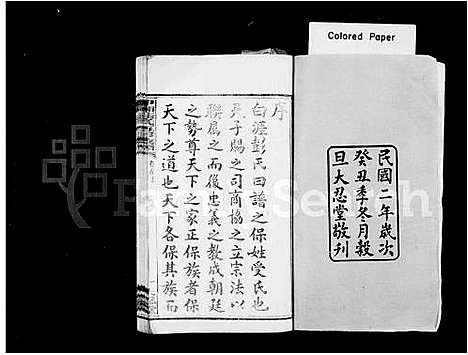 Colored Paper
民國二年歲次
癸丑季冬月穀
旦大忍堂敬刊
序
白涯彭氏曰譜之保姓受氏也
天子賜之司商協之立宗法以
聯屬之而後忠義之教成朝廷
之勢尊天下之家正保族者保
天下之道也天下各保其族而